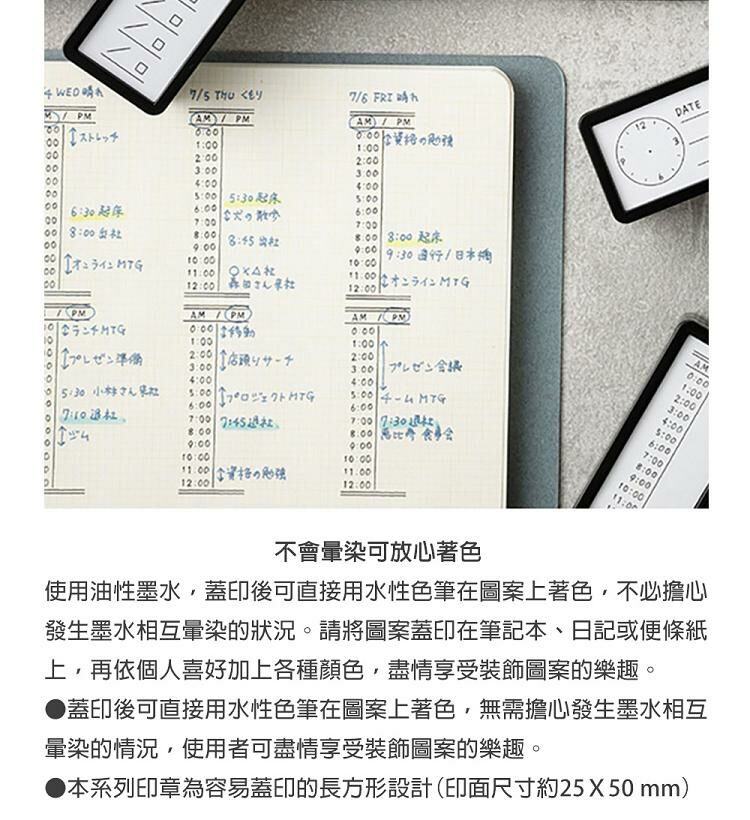 4 WED 晴れ
7/5 THU くもり
7/6 FRI 晴れ
/ PM
AM / PM
AM / PM
ストレッチ
6:30 起床
8:00 出社
オンラインMTG
0:00
1:00
2:00
3:00
4:00
5:00 5:30 起床
6:00 犬の散歩
7:00
8:00 8:45 出社
9:00
10:00
11:00 ○×△社
12:00 森田さん来社
0:00 資格の勉強
1:00
2:00
3:00
4:00
5:00
6:00
7:00
8:00 8:00 起床
9:00 9:30 直行/日本橋
10:00
11:00 オンラインMTG
12:00
/ PM
AM / PM
AM / PM
ランチMTG
プレゼン準備
5:30 小林さん来社
7:10 退社
ジム
0:00 移動
1:00
2:00 店頭リサーチ
3:00
4:00
5:00 プロジェクトMTG
6:00
7:00 7:45退社
8:00
9:00
10:00
11:00 資格の勉強
12:00
0:00
1:00
2:00 プレゼン会議
3:00
4:00
5:00 チームMTG
6:00
7:00 7:30退社
8:00 恵比寿 食事会
9:00
10:00
11:00
12:00
DATE
12
3
6
9
AM
0:00
1:00
2:00
3:00
4:00
5:00
6:00
7:00
8:00
9:00
10:00
11:00
不會暈染可放心著色
使用油性墨水，蓋印後可直接用水性色筆在圖案上著色，不必擔心
發生墨水相互暈染的狀況。請將圖案蓋印在筆記本、日記或便條紙
上，再依個人喜好加上各種顏色，盡情享受裝飾圖案的樂趣。
●蓋印後可直接用水性色筆在圖案上著色，無需擔心發生墨水相互
暈染的情況，使用者可盡情享受裝飾圖案的樂趣。
●本系列印章為容易蓋印的長方形設計（印面尺寸約25X50 mm）